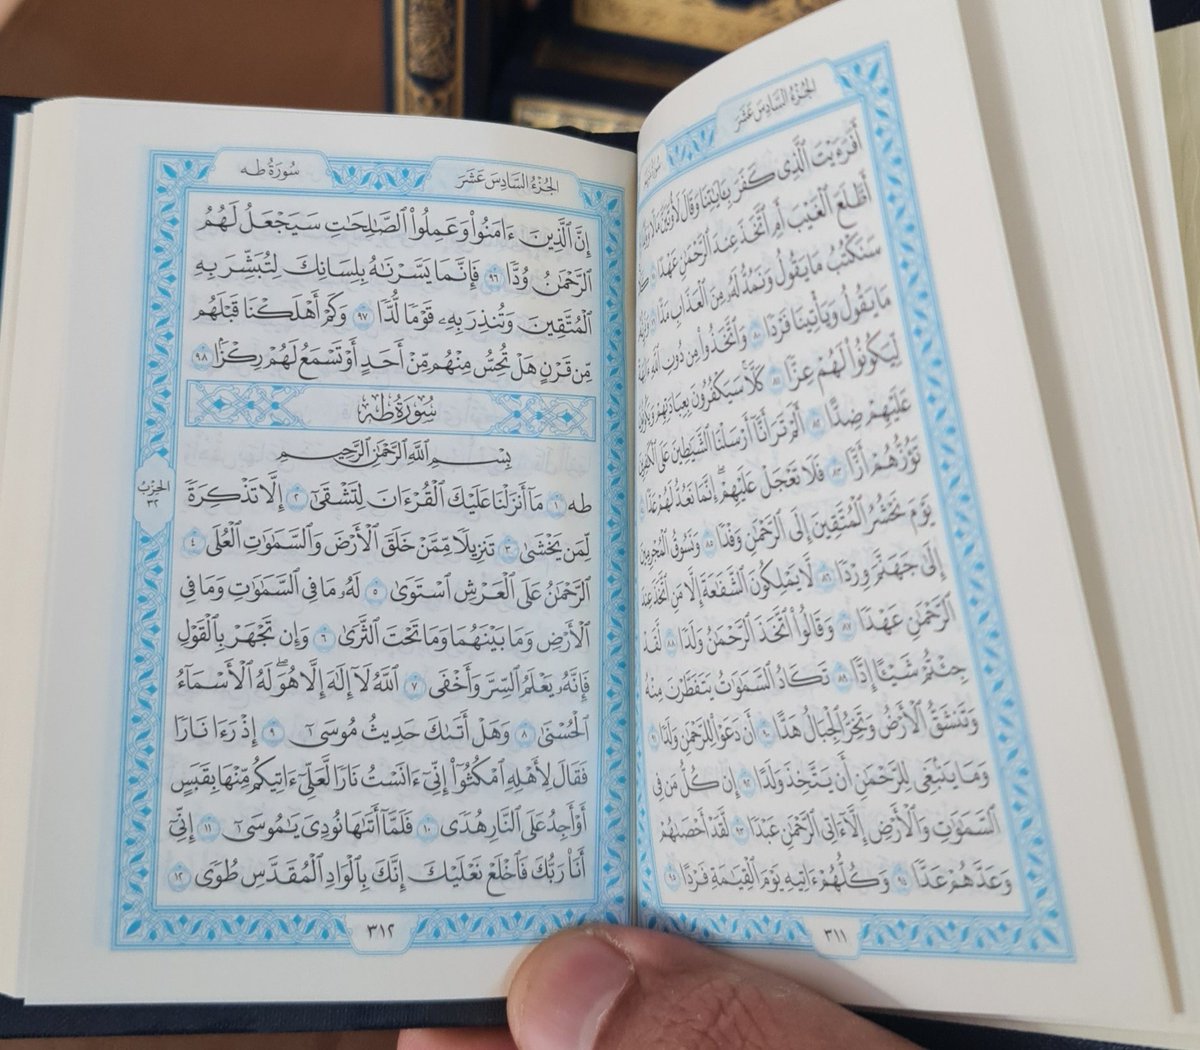 الجُزْءُ السَّادِسَ عَشَرَ
أَفَرَءَيْتَ ٱلَّذِى كَفَرَ بِـَٔايَٰتِنَا وَقَالَ لَأُوتَيَنَّ مَالًا
أَطَّلَعَ ٱلْغَيْبَ أَمِ ٱتَّخَذَ عِندَ ٱلرَّحْمَٰنِ عَهْدًا
سَنَكْتُبُ مَا يَقُولُ وَنَمُدُّ لَهُۥ مِنَ ٱلْعَذَابِ مَدًّا
مَا يَقُولُ وَيَأْتِينَا فَرْدًا ٨٠ وَٱتَّخَذُوا۟ مِن دُونِ ٱللَّهِ
لِّيَكُونُوا۟ لَهُمْ عِزًّا ٨١ كَلَّا سَيَكْفُرُونَ بِعِبَادَتِهِمْ
عَلَيْهِمْ ضِدًّا ٨٢ أَلَمْ تَرَ أَنَّآ أَرْسَلْنَا ٱلشَّيَٰطِينَ عَلَى ٱلْكَٰفِرِينَ
تَؤُزُّهُمْ أَزًّا ٨٣ فَلَا تَعْجَلْ عَلَيْهِمْ إِنَّمَا نَعُدُّ لَهُمْ عَدًّا
يَوْمَ نَحْشُرُ ٱلْمُتَّقِينَ إِلَى ٱلرَّحْمَٰنِ وَفْدًا ٨٥ وَنَسُوقُ ٱلْمُجْرِمِينَ
إِلَىٰ جَهَنَّمَ وِرْدًا ٨٦ لَّا يَمْلِكُونَ ٱلشَّفَٰعَةَ إِلَّا مَنِ ٱتَّخَذَ عِندَ
ٱلرَّحْمَٰنِ عَهْدًا ٨٧ وَقَالُوا۟ ٱتَّخَذَ ٱلرَّحْمَٰنُ وَلَدًا ٨٨ لَّقَدْ
جِئْتُمْ شَيْـًٔا إِدًّا ٨٩ تَكَادُ ٱلسَّمَٰوَٰتُ يَتَفَطَّرْنَ مِنْهُ
وَتَنشَقُّ ٱلْأَرْضُ وَتَخِرُّ ٱلْجِبَالُ هَدًّا ٩٠ أَن دَعَوْا۟ لِلرَّحْمَٰنِ وَلَدًا ٩١
وَمَا يَنۢبَغِى لِلرَّحْمَٰنِ أَن يَتَّخِذَ وَلَدًا ٩٢ إِن كُلُّ مَن فِى
ٱلسَّمَٰوَٰتِ وَٱلْأَرْضِ إِلَّآ ءَاتِى ٱلرَّحْمَٰنِ عَبْدًا ٩٣ لَّقَدْ أَحْصَىٰهُمْ
وَعَدَّهُمْ عَدًّا ٩٤ وَكُلُّهُمْ ءَاتِيهِ يَوْمَ ٱلْقِيَٰمَةِ فَرْدًا ٩٥
٣١١
الجُزْءُ السَّادِسَ عَشَرَ
سُورَةُ طه
إِنَّ ٱلَّذِينَ ءَامَنُوا۟ وَعَمِلُوا۟ ٱلصَّٰلِحَٰتِ سَيَجْعَلُ لَهُمُ
ٱلرَّحْمَٰنُ وُدًّا ٩٦ فَإِنَّمَا يَسَّرْنَٰهُ بِلِسَانِكَ لِتُبَشِّرَ بِهِ
ٱلْمُتَّقِينَ وَتُنذِرَ بِهِۦ قَوْمًا لُّدًّا ٩٧ وَكَمْ أَهْلَكْنَا قَبْلَهُم
مِّن قَرْنٍ هَلْ تُحِسُّ مِنْهُم مِّنْ أَحَدٍ أَوْ تَسْمَعُ لَهُمْ رِكْزًۢا ٩٨
سُورَةُ طه
بِسْمِ ٱللَّهِ ٱلرَّحْمَٰنِ ٱلرَّحِيمِ
طه ١ مَآ أَنزَلْنَا عَلَيْكَ ٱلْقُرْءَانَ لِتَشْقَىٰٓ ٢ إِلَّا تَذْكِرَةً
لِّمَن يَخْشَىٰ ٣ تَنزِيلًا مِّمَّنْ خَلَقَ ٱلْأَرْضَ وَٱلسَّمَٰوَٰتِ ٱلْعُلَى ٤
ٱلرَّحْمَٰنُ عَلَى ٱلْعَرْشِ ٱسْتَوَىٰ ٥ لَهُۥ مَا فِى ٱلسَّمَٰوَٰتِ وَمَا فِى
ٱلْأَرْضِ وَمَا بَيْنَهُمَا وَمَا تَحْتَ ٱلثَّرَىٰ ٦ وَإِن تَجْهَرْ بِٱلْقَوْلِ
فَإِنَّهُۥ يَعْلَمُ ٱلسِّرَّ وَأَخْفَى ٧ ٱللَّهُ لَآ إِلَٰهَ إِلَّا هُوَۖ لَهُ ٱلْأَسْمَآءُ
ٱلْحُسْنَىٰ ٨ وَهَلْ أَتَىٰكَ حَدِيثُ مُوسَىٰٓ ٩ إِذْ رَءَا نَارًا
فَقَالَ لِأَهْلِهِ ٱمْكُثُوٓا۟ إِنِّىٓ ءَانَسْتُ نَارًا لَّعَلِّىٓ ءَاتِيكُم مِّنْهَا بِقَبَسٍ
أَوْ أَجِدُ عَلَى ٱلنَّارِ هُدًى ١٠ فَلَمَّآ أَتَىٰهَا نُودِىَ يَٰمُوسَىٰٓ ١١ إِنِّىٓ
أَنَا۠ رَبُّكَ فَٱخْلَعْ نَعْلَيْكَ إِنَّكَ بِٱلْوَادِ ٱلْمُقَدَّسِ طُوًى ١٢
الحِزْبُ
٣٢
٣١٢